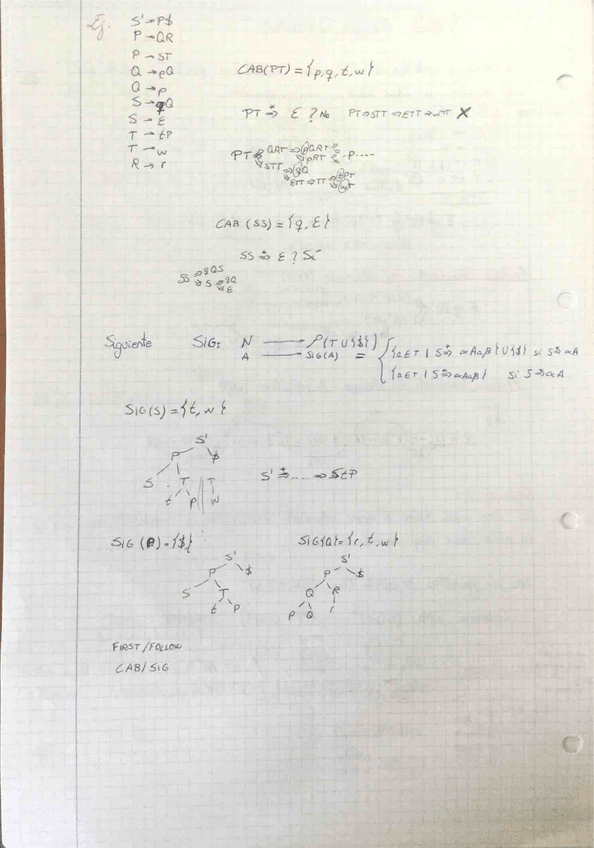 Ej:
S' → P$
P → QR
P → ST
Q → pQ
Q → p
S → qQ
S → ε
T → tP
T → w
R → r
CAB(PT) = {p, q, t, w}
PT ⇒* ε ? No PT ⇒ STT ⇒ εTT ⇒ wTT X
PT QRT ⇒ pQRT
pRT . p....
STT ⇒ qQ
εTT ⇒ TT ⇒ tPT
CAB (SS) = {q, ε}
SS ⇒* ε ? Sí
SS ⇒ qQS
S ⇒ qQ
ε
Siguiente SIG: N → P(T ∪ {$})
A → SIG(A) = { {a ∈ T | S ⇒* αAaβ} ∪ {$} si S ⇒* αA
{a ∈ T | S ⇒* αAaβ} si S ⇒ αA
SIG(S) = {t, w}
S'
P $
S T T
t P w
S' ⇒* .... ⇒ StP
SIG (P) = {$} SIG(Q) = {r, t, w}
S' S'
P $ P $
S T Q R
t P P Q r
FIRST/FOLLOW
CAB/SIG